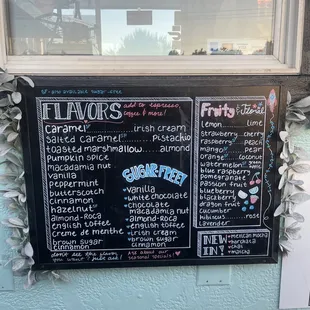 FLAVORS
add to espresso,
coffee & more!
caramel
irish cream
salted caramel
pistachio
toasted marshmallow
almond
pumpkin spice
macadamia nut
vanilla
peppermint
butterscotch
cinnamon
hazelnut
almond-roca
english toffee
creme de menthe
brown sugar
cinnamon
SUGAR FREE!
vanilla
white chocolate
chocolate
macadamia nut
almond-roca
english toffee
irish cream
brown sugar
cinnamon
don't see the flavor
you want? just ask!
Ask about our
seasonal specials!
Fruity
lemon
lime
strawberry
cherry
raspberry
peach
mango
pear
orange
coconut
watermelon
blue raspberry
pomegranate
passion fruit
blueberry
blackberry
dragon fruit
cucumber
hibiscus
rose
lavender
NEW
IN!
mexican mocha
horchata
chai
matcha